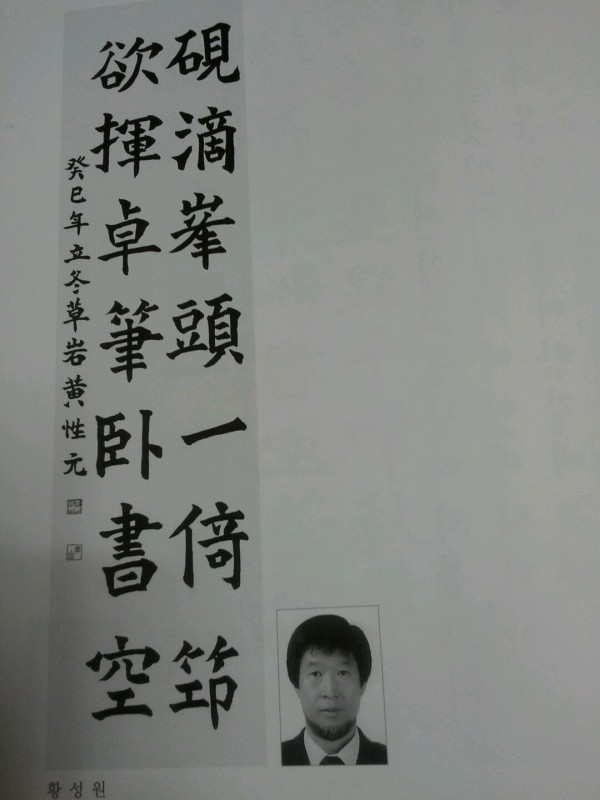 硯滴峯頭一倚笻
欲揮卓筆卧書空
癸巳年立冬草岩黃性元
황성원